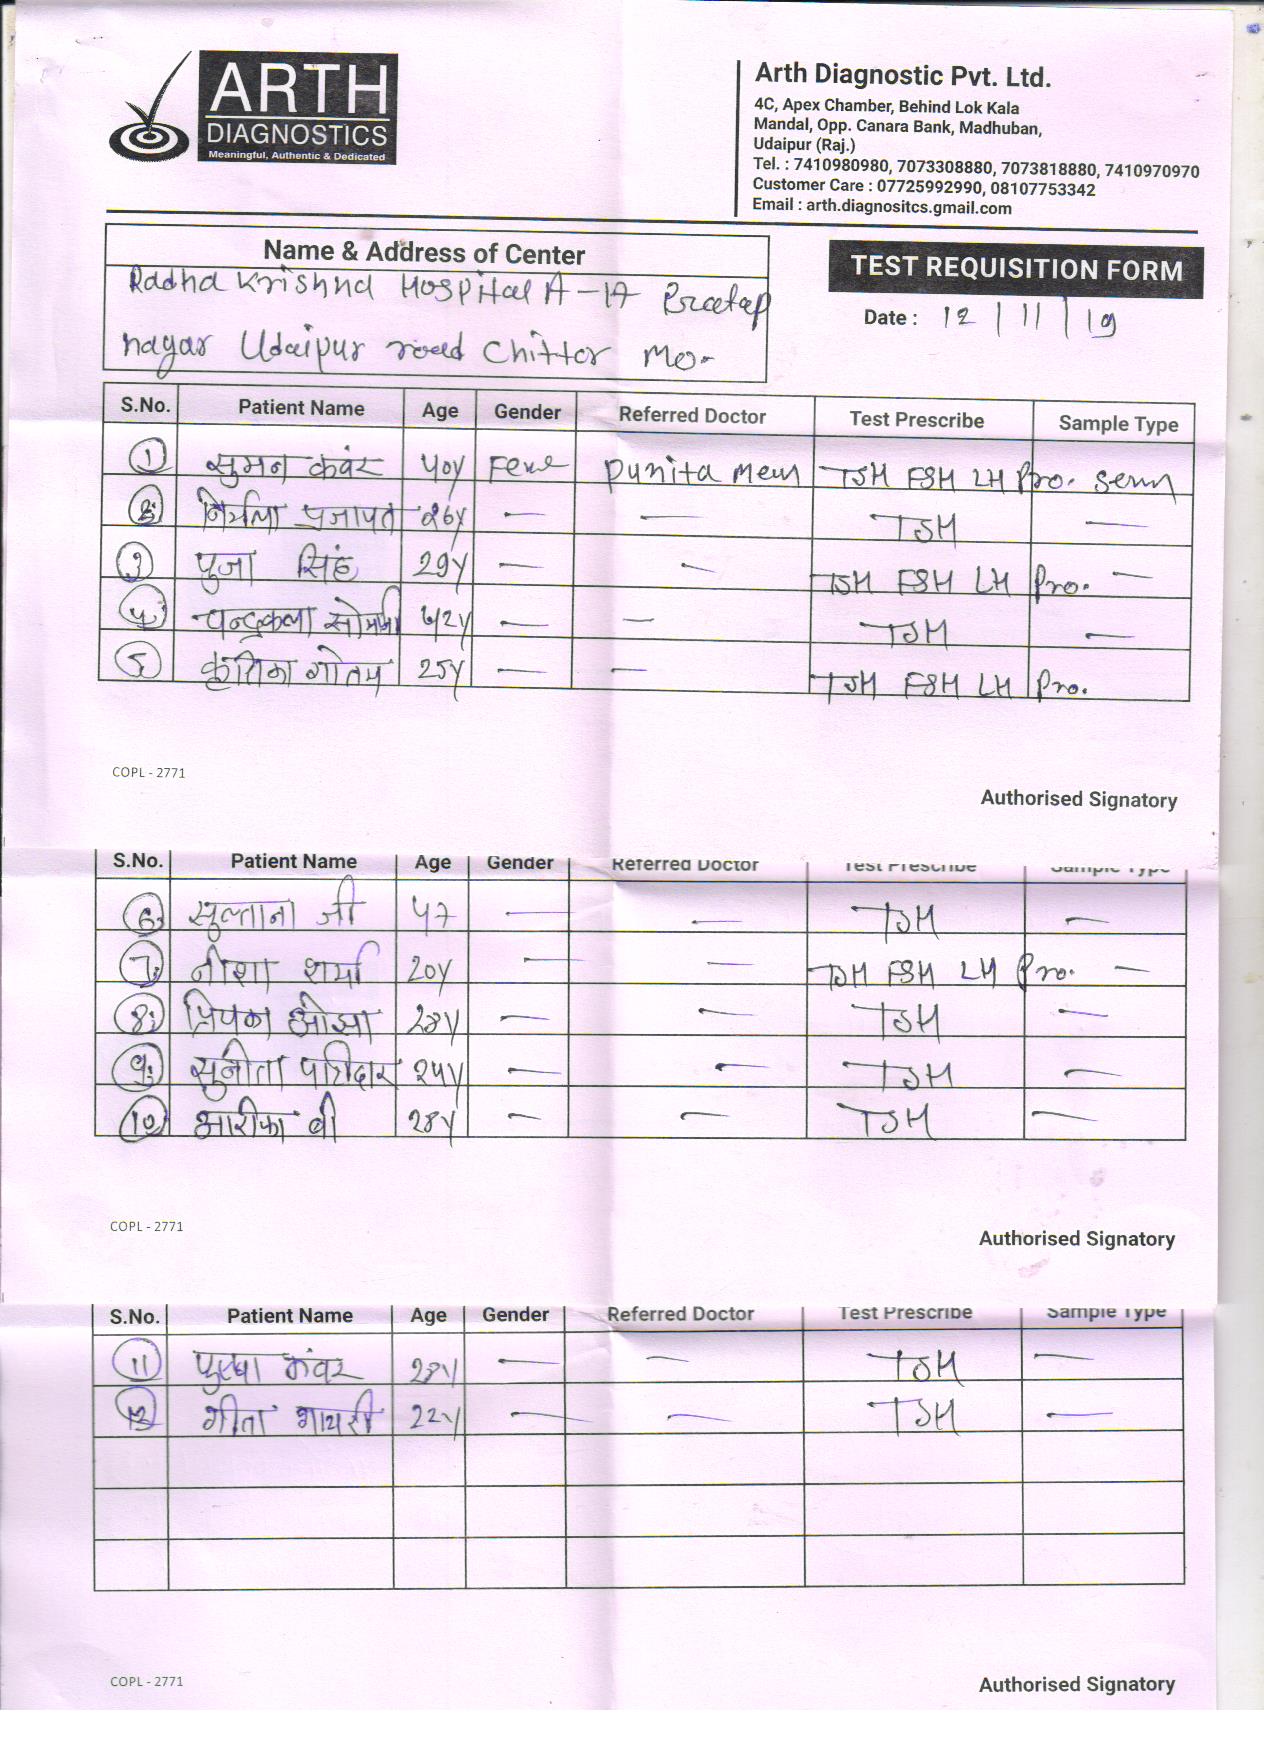 ARTH
DIAGNOSTICS
Meaningful, Authentic & Dedicated
Arth Diagnostic Pvt. Ltd.
4C, Apex Chamber, Behind Lok Kala
Mandal, Opp. Canara Bank, Madhuban,
Udaipur (Raj.)
Tel. : 7410980980, 7073308880, 7073818880, 7410970970
Customer Care : 07725992990, 08107753342
Email : arth.diagnositcs.gmail.com
Name & Address of Center
Radha Krishna Hospital A-17 Pratap
nagar Udaipur road Chittor Mo-
TEST REQUISITION FORM
Date : 12 | 11 | 19
S.No. Patient Name Age Gender Referred Doctor Test Prescribe Sample Type
1 सुमन कवंर 40y Punita Mem TSH FSH LH Pro. Serum
2 निर्मला प्रजापत 26y — — TSH —
3 पुजा सिंह 29y — — TSH FSH LH Pro. —
4 चन्द्रकला सोमानी — — TSH —
5 गोतम 25y — — TSH FSH LH Pro.
COPL - 2771
Authorised Signatory
S.No. Patient Name Age Gender Referred Doctor Test Prescribe Sample Type
6 सुल्ताना जी 47 — — TSH —
7 नीशा शर्मा 20y — — TSH FSH LH Pro. —
8 ओझा 28y — — TSH —
9 सुनीता 24y — — TSH —
10 आरीफा बी 28y — — TSH —
COPL - 2771
Authorised Signatory
S.No. Patient Name Age Gender Referred Doctor Test Prescribe Sample Type
11 कंवर 28y — — TSH —
12 गीता गायरी 22y — — TSH —
COPL - 2771
Authorised Signatory